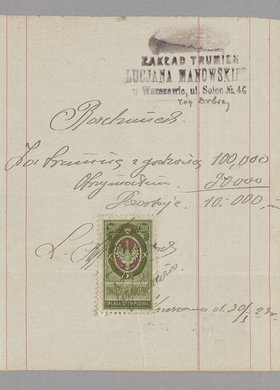 ZAKŁAD TRUMIEN
LUCJANA MANOWSKIEGO
w Warszawie, ul. Solec № 46
róg Dobrej
Rachunek
Za trumnę z godzoną 100,000
Otrzymałem 90000
Pozostaje 10.000
L.
OPŁATA STEMPLOWA
Warszawa d. 30/I 23 r.